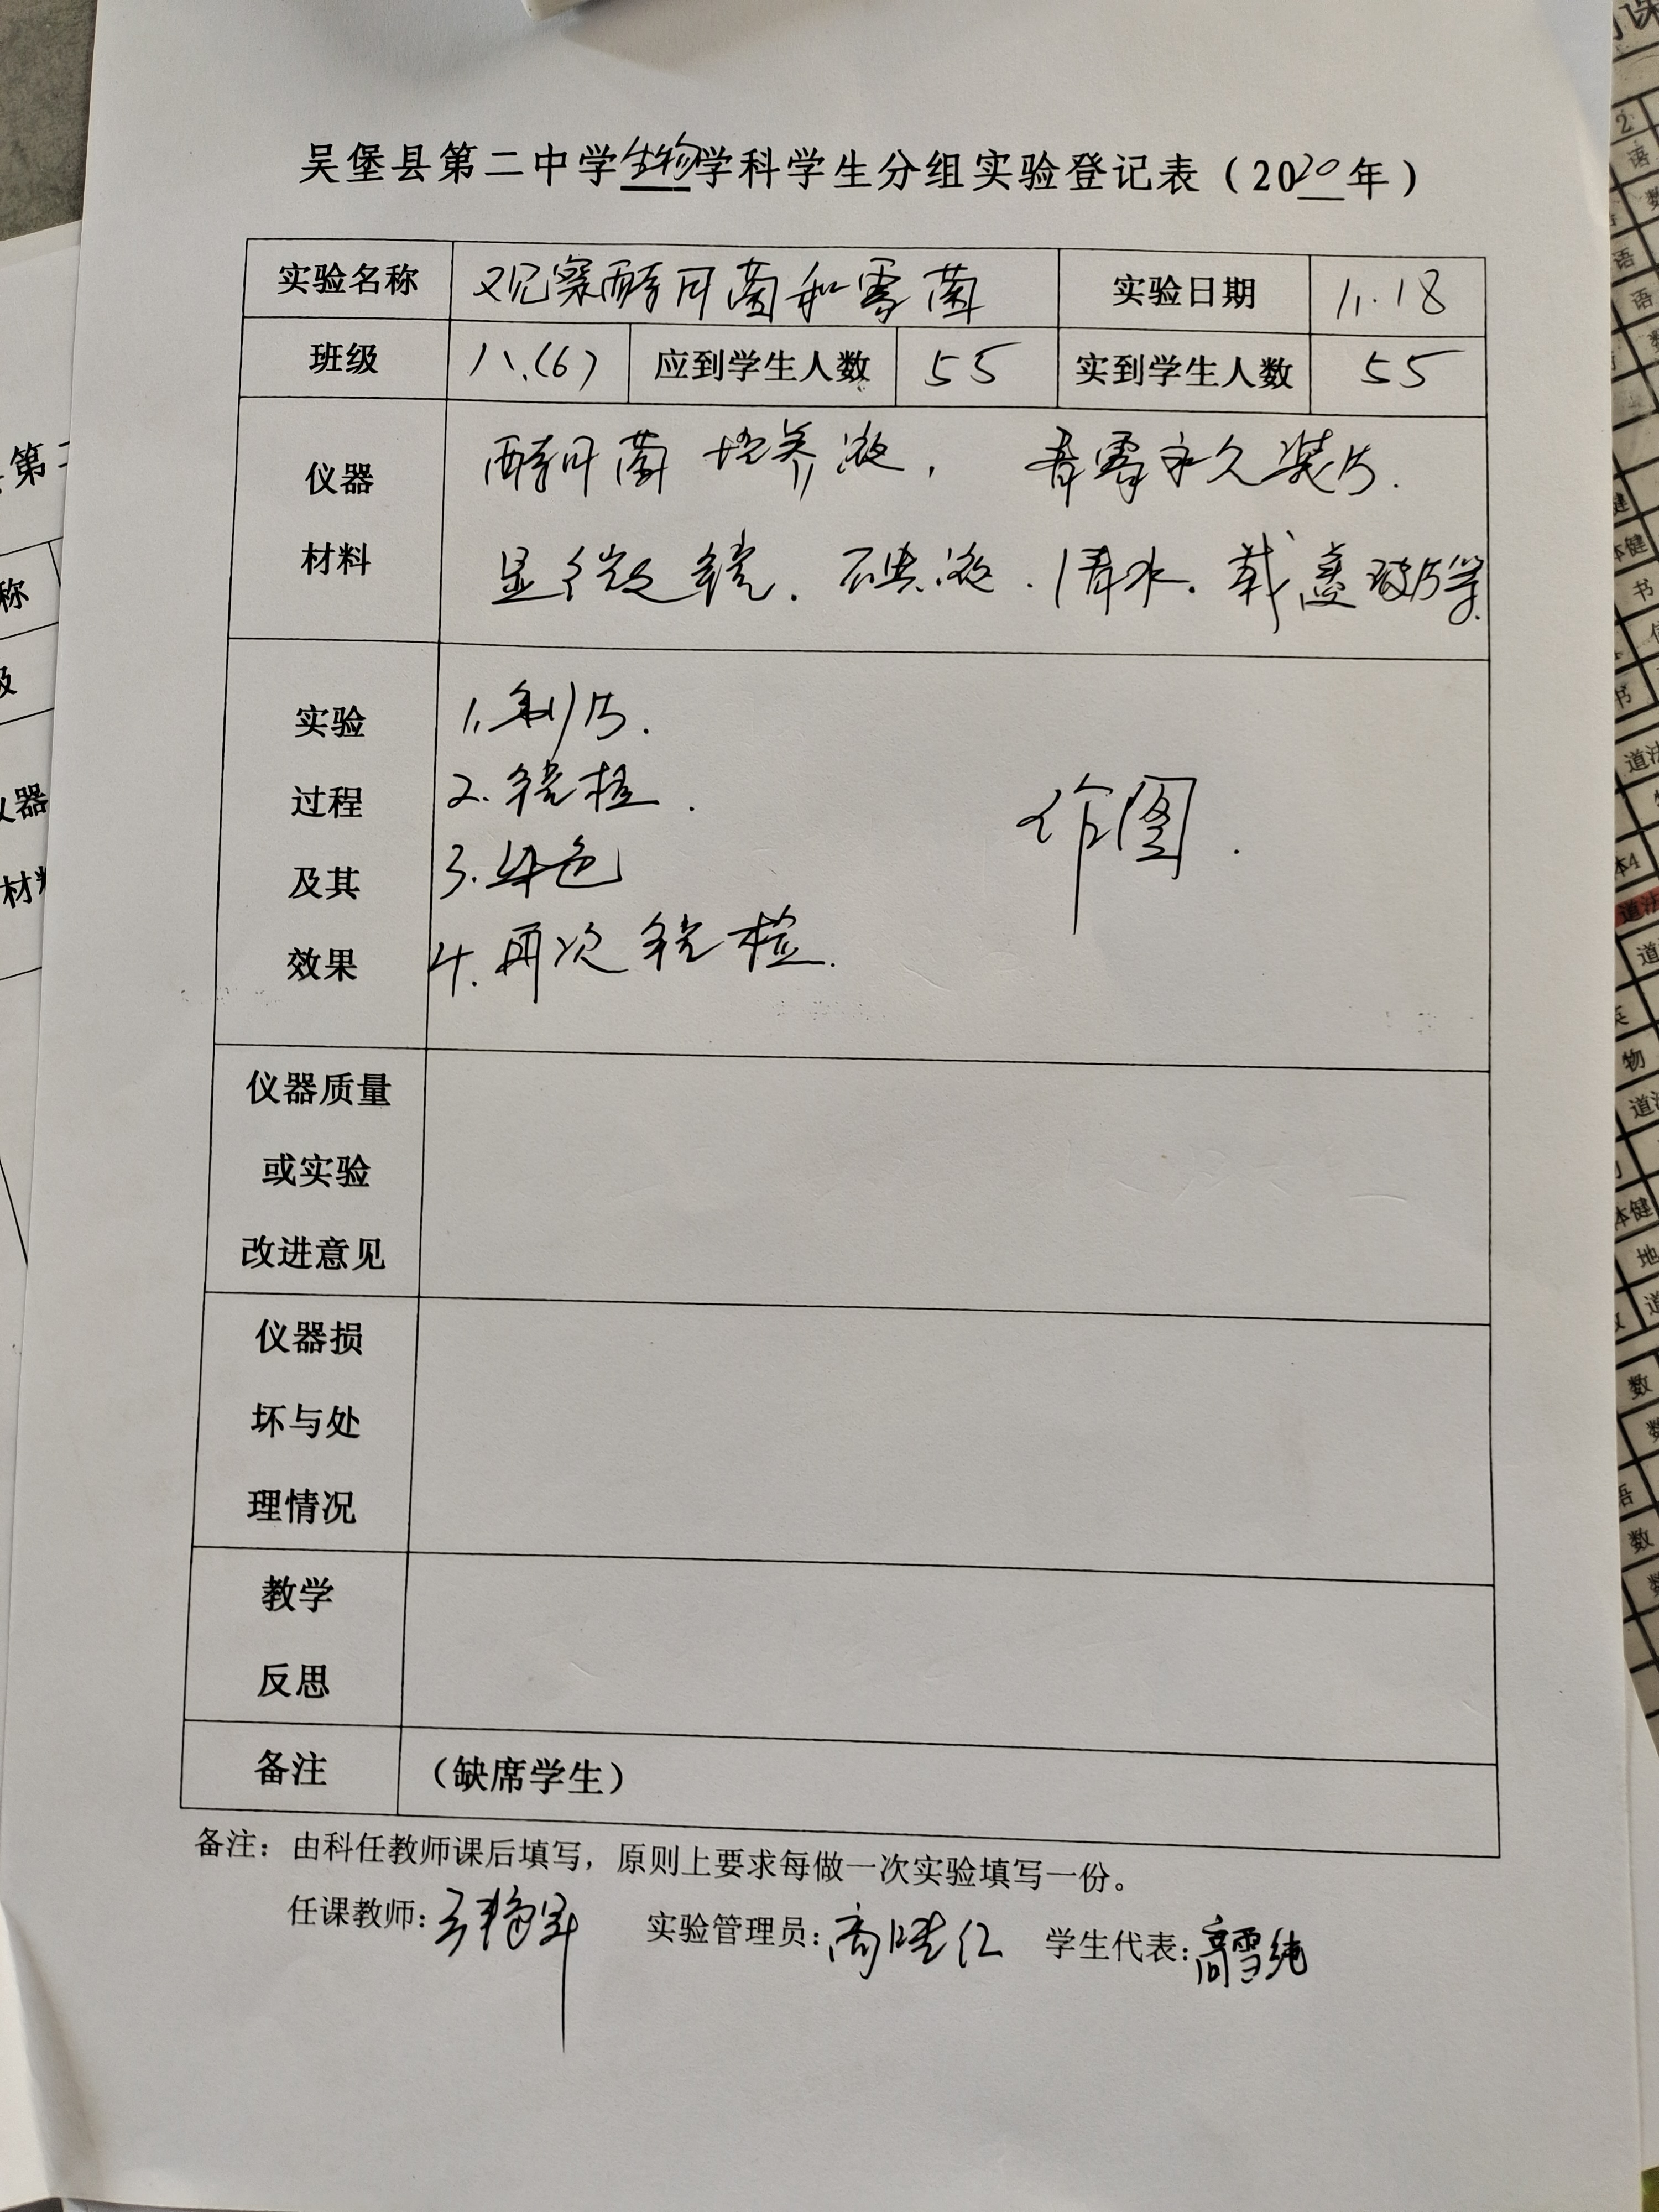 吴堡县第二中学生物学科学生分组实验登记表（2020年）
实验名称 观察酵母菌和霉菌 实验日期 11.18
班级 八.(6) 应到学生人数 55 实到学生人数 55
仪器
材料
酵母菌培养液， 青霉永久装片.
显微镜. 碘液. 清水. 载盖玻片等
实验
过程
及其
效果
1.制片.
2.镜检.
3.染色
4.再次镜检.
作图.
仪器质量
或实验
改进意见
仪器损
坏与处
理情况
教学
反思
备注 （缺席学生）
备注：由科任教师课后填写，原则上要求每做一次实验填写一份。
任课教师： 实验管理员： 学生代表：高雪纯